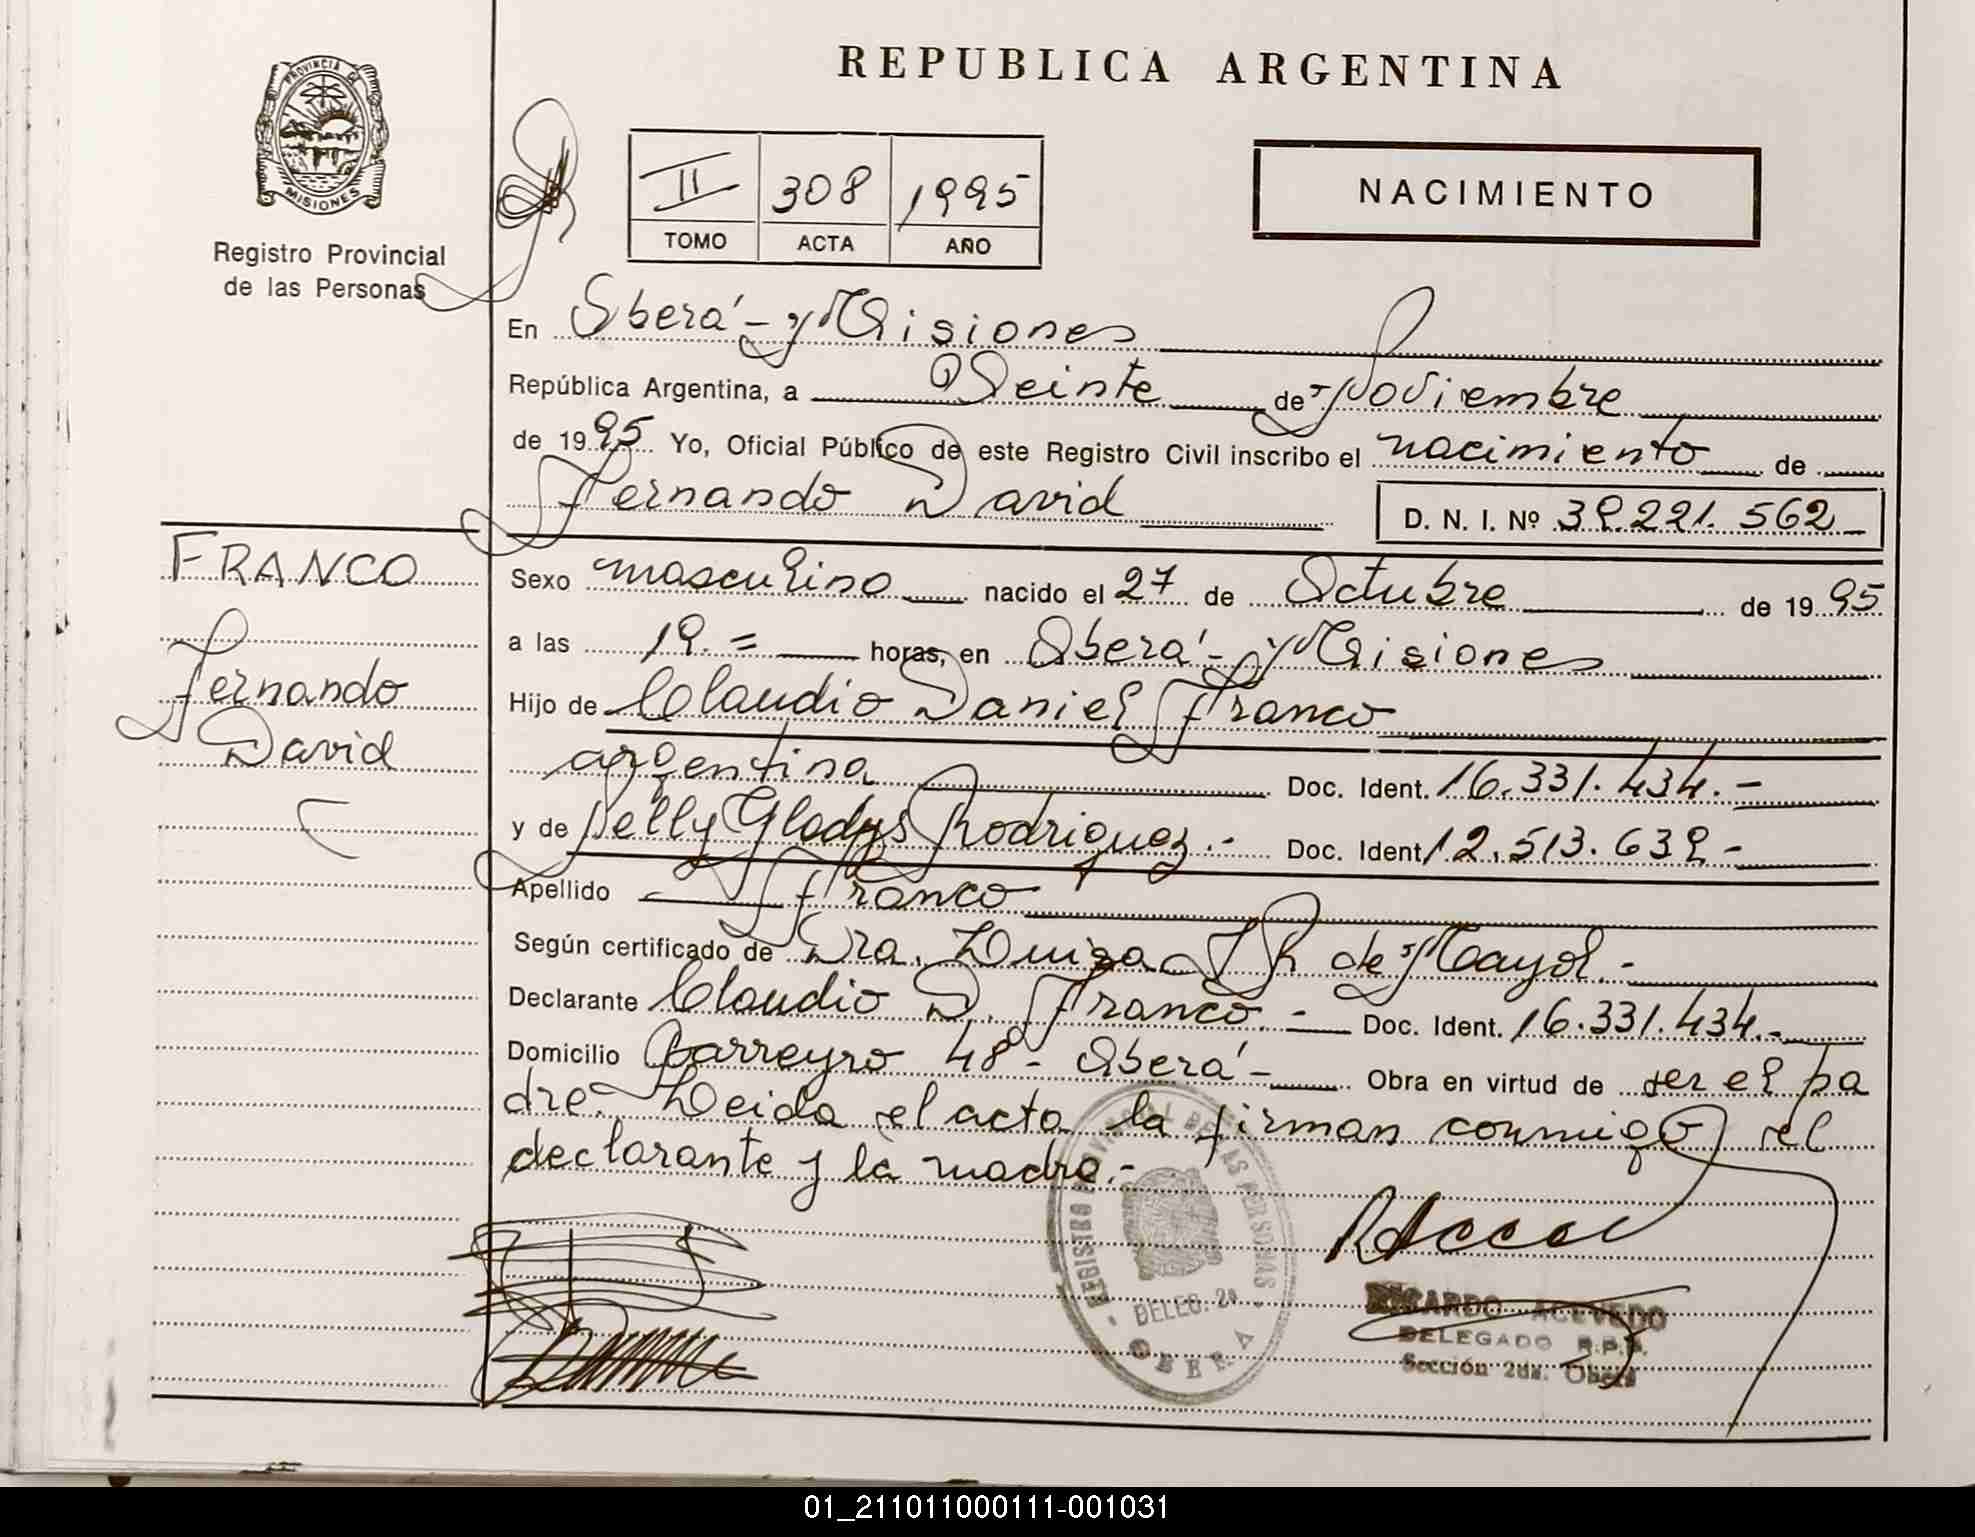 REPUBLICA ARGENTINA
PROVINCIA DE
MISIONES
Registro Provincial
de las Personas
II 308 1995
TOMO ACTA AÑO
NACIMIENTO
En Oberá - Misiones
República Argentina, a Veinte de Noviembre
de 1995 Yo, Oficial Público de este Registro Civil inscribo el nacimiento de
Fernando David D. N. I. Nº 39.221.562
FRANCO
Fernando
David
Sexo masculino nacido el 27 de Octubre de 1995
a las 19.= horas, en Oberá - Misiones
Hijo de Claudio Daniel Franco
argentina Doc. Ident. 16.331.434.-
y de Nelly Gladys Rodriguez.- Doc. Ident 12.513.639-
Apellido Franco
Según certificado de Dra. Luisa de Mayol.-
Declarante Claudio D. Franco.- Doc. Ident. 16.331.434.-
Domicilio Barreyro 48 - Oberá - Obra en virtud de ser el pa
dre. Leida el acta la firman conmigo el
declarante y la madre.-
REGISTRO PROVINCIAL DE LAS PERSONAS
DELEG. 2ª
OBERA
RICARDO ACEVEDO
DELEGADO R.P.P.
Sección 2da. Oberá
01_211011000111-001031